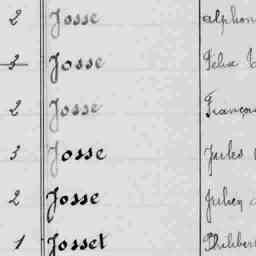 2 Josse Alphon
3 Josse Félix
2 Josse Françoi
3 Josse Jules
2 Josse Julien
1 Josset Philiber